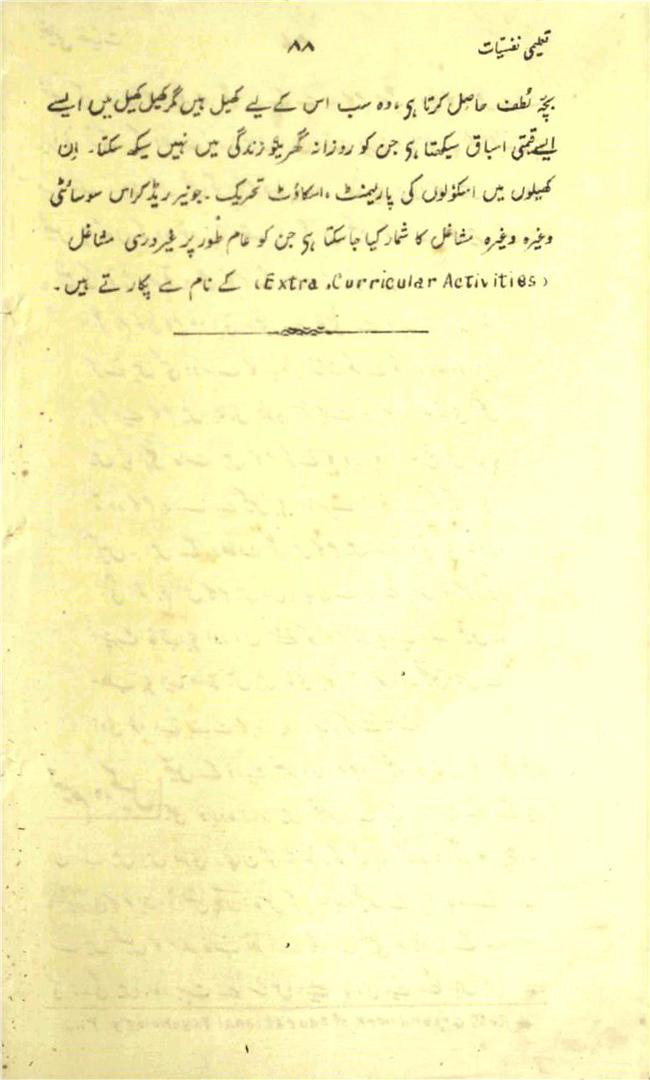 تعلیمی نفسیات ۸۸
بچّہ لُطف حاصل کرتا ہی، وہ سب اس کے لیے کھیل ہیں مگر کھیل کھیل میں ایسے
ایسے قیمتی اسباق سیکھتا ہی جن کو روزانہ گھریلو زندگی میں نہیں سیکھ سکتا۔ اِن
کھیلوں میں اسکولوں کی پارلیمنٹ، اسکاؤٹ تحریک۔ جونیر ریڈ کراس سوسائٹی
وغیرہ وغیرہ مشاغل کا شمار کیا جا سکتا ہی جن کو عام طور پر غیر درسی مشاغل
(Extra Curricular Activities) کے نام سے پکارتے ہیں۔